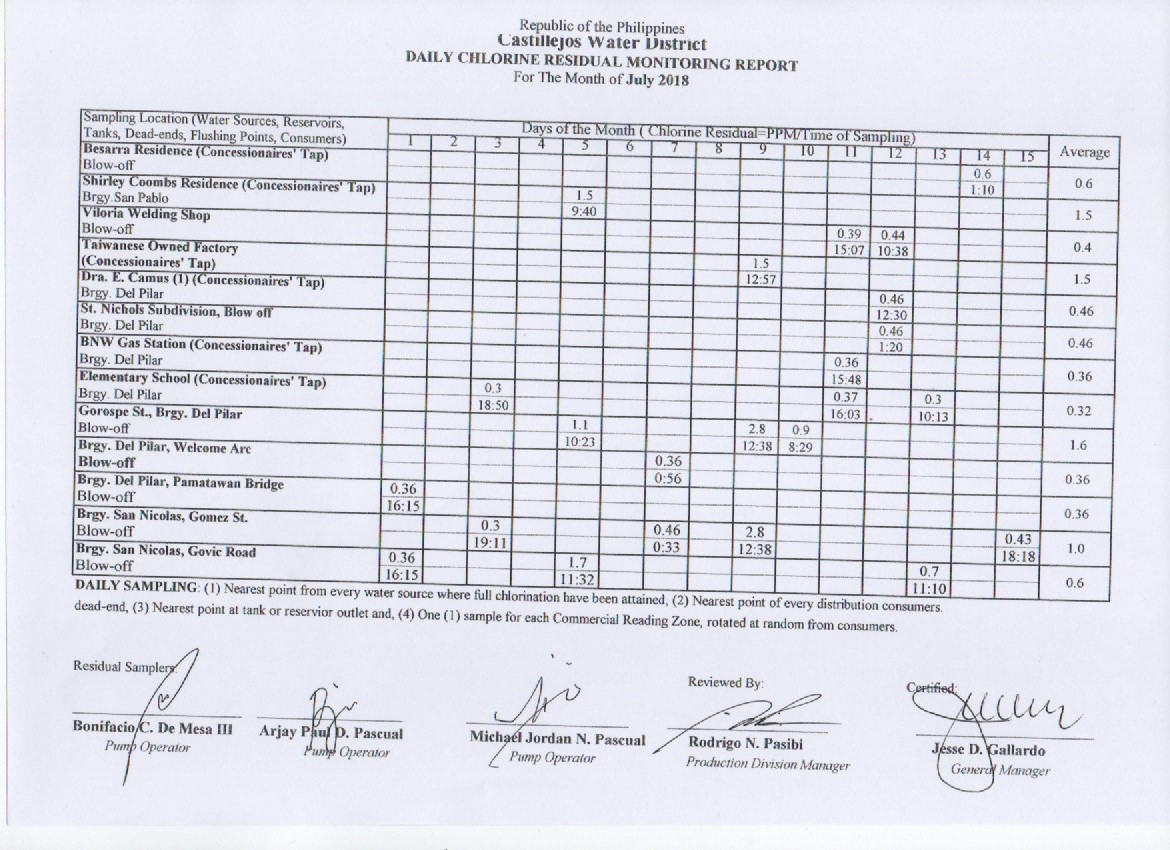 Republic of the Philippines
Castillejos Water District
DAILY CHLORINE RESIDUAL MONITORING REPORT
For The Month of July 2018
Sampling Location (Water Sources, Reservoirs,
Tanks, Dead-ends, Flushing Points, Consumers)
Days of the Month ( Chlorine Residual=PPM/Time of Sampling)
Average
1 2 3 4 5 6 7 8 9 10 11 12 13 14 15
Besarra Residence (Concessionaires' Tap)
Blow-off
0.6
1:10
0.6
Shirley Coombs Residence (Concessionaires' Tap)
Brgy.San Pablo
1.5
9:40
1.5
Viloria Welding Shop
Blow-off
0.39 0.44
15:07 10:38
0.4
Taiwanese Owned Factory
(Concessionaires' Tap)
1.5
12:57
1.5
Dra. E. Camus (1) (Concessionaires' Tap)
Brgy. Del Pilar
0.46
12:30
0.46
St. Nichols Subdivision, Blow off
Brgy. Del Pilar
0.46
1:20
0.46
BNW Gas Station (Concessionaires' Tap)
Brgy. Del Pilar
0.36
15:48
0.36
Elementary School (Concessionaires' Tap)
Brgy. Del Pilar
0.3 0.37 0.3
18:50 16:03 10:13
0.32
Gorospe St., Brgy. Del Pilar
Blow-off
1.1 2.8 0.9
10:23 12:38 8:29
1.6
Brgy. Del Pilar, Welcome Arc
Blow-off
0.36
0:56
0.36
Brgy. Del Pilar, Pamatawan Bridge
Blow-off
0.36
16:15
0.36
Brgy. San Nicolas, Gomez St.
Blow-off
0.3 0.46 2.8 0.43
19:11 0:33 12:38 18:18
1.0
Brgy. San Nicolas, Govic Road
Blow-off
0.36 1.7 0.7
16:15 11:32 11:10
0.6
DAILY SAMPLING: (1) Nearest point from every water source where full chlorination have been attained, (2) Nearest point of every distribution consumers.
dead-end, (3) Nearest point at tank or reservior outlet and, (4) One (1) sample for each Commercial Reading Zone, rotated at random from consumers.
Residual Samplers:
Reviewed By:
Certified:
Bonifacio C. De Mesa III
Pump Operator
Arjay Paul D. Pascual
Pump Operator
Michael Jordan N. Pascual
Pump Operator
Rodrigo N. Pasibi
Production Division Manager
Jesse D. Gallardo
General Manager